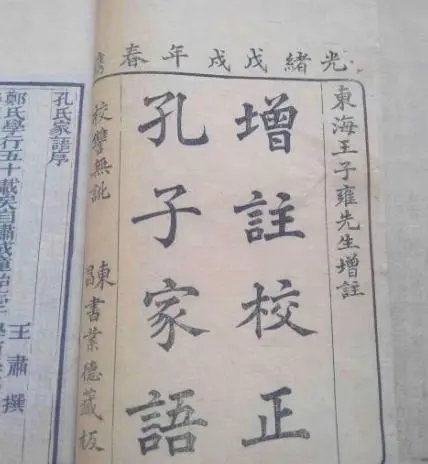 光緒戊戌年春
東海王子雍先生增註
增註校正
孔子家語
校讐無訛
東昌書業德藏板
孔氏家語序
王肅撰
鄭氏學行五十載矣自肅成童始